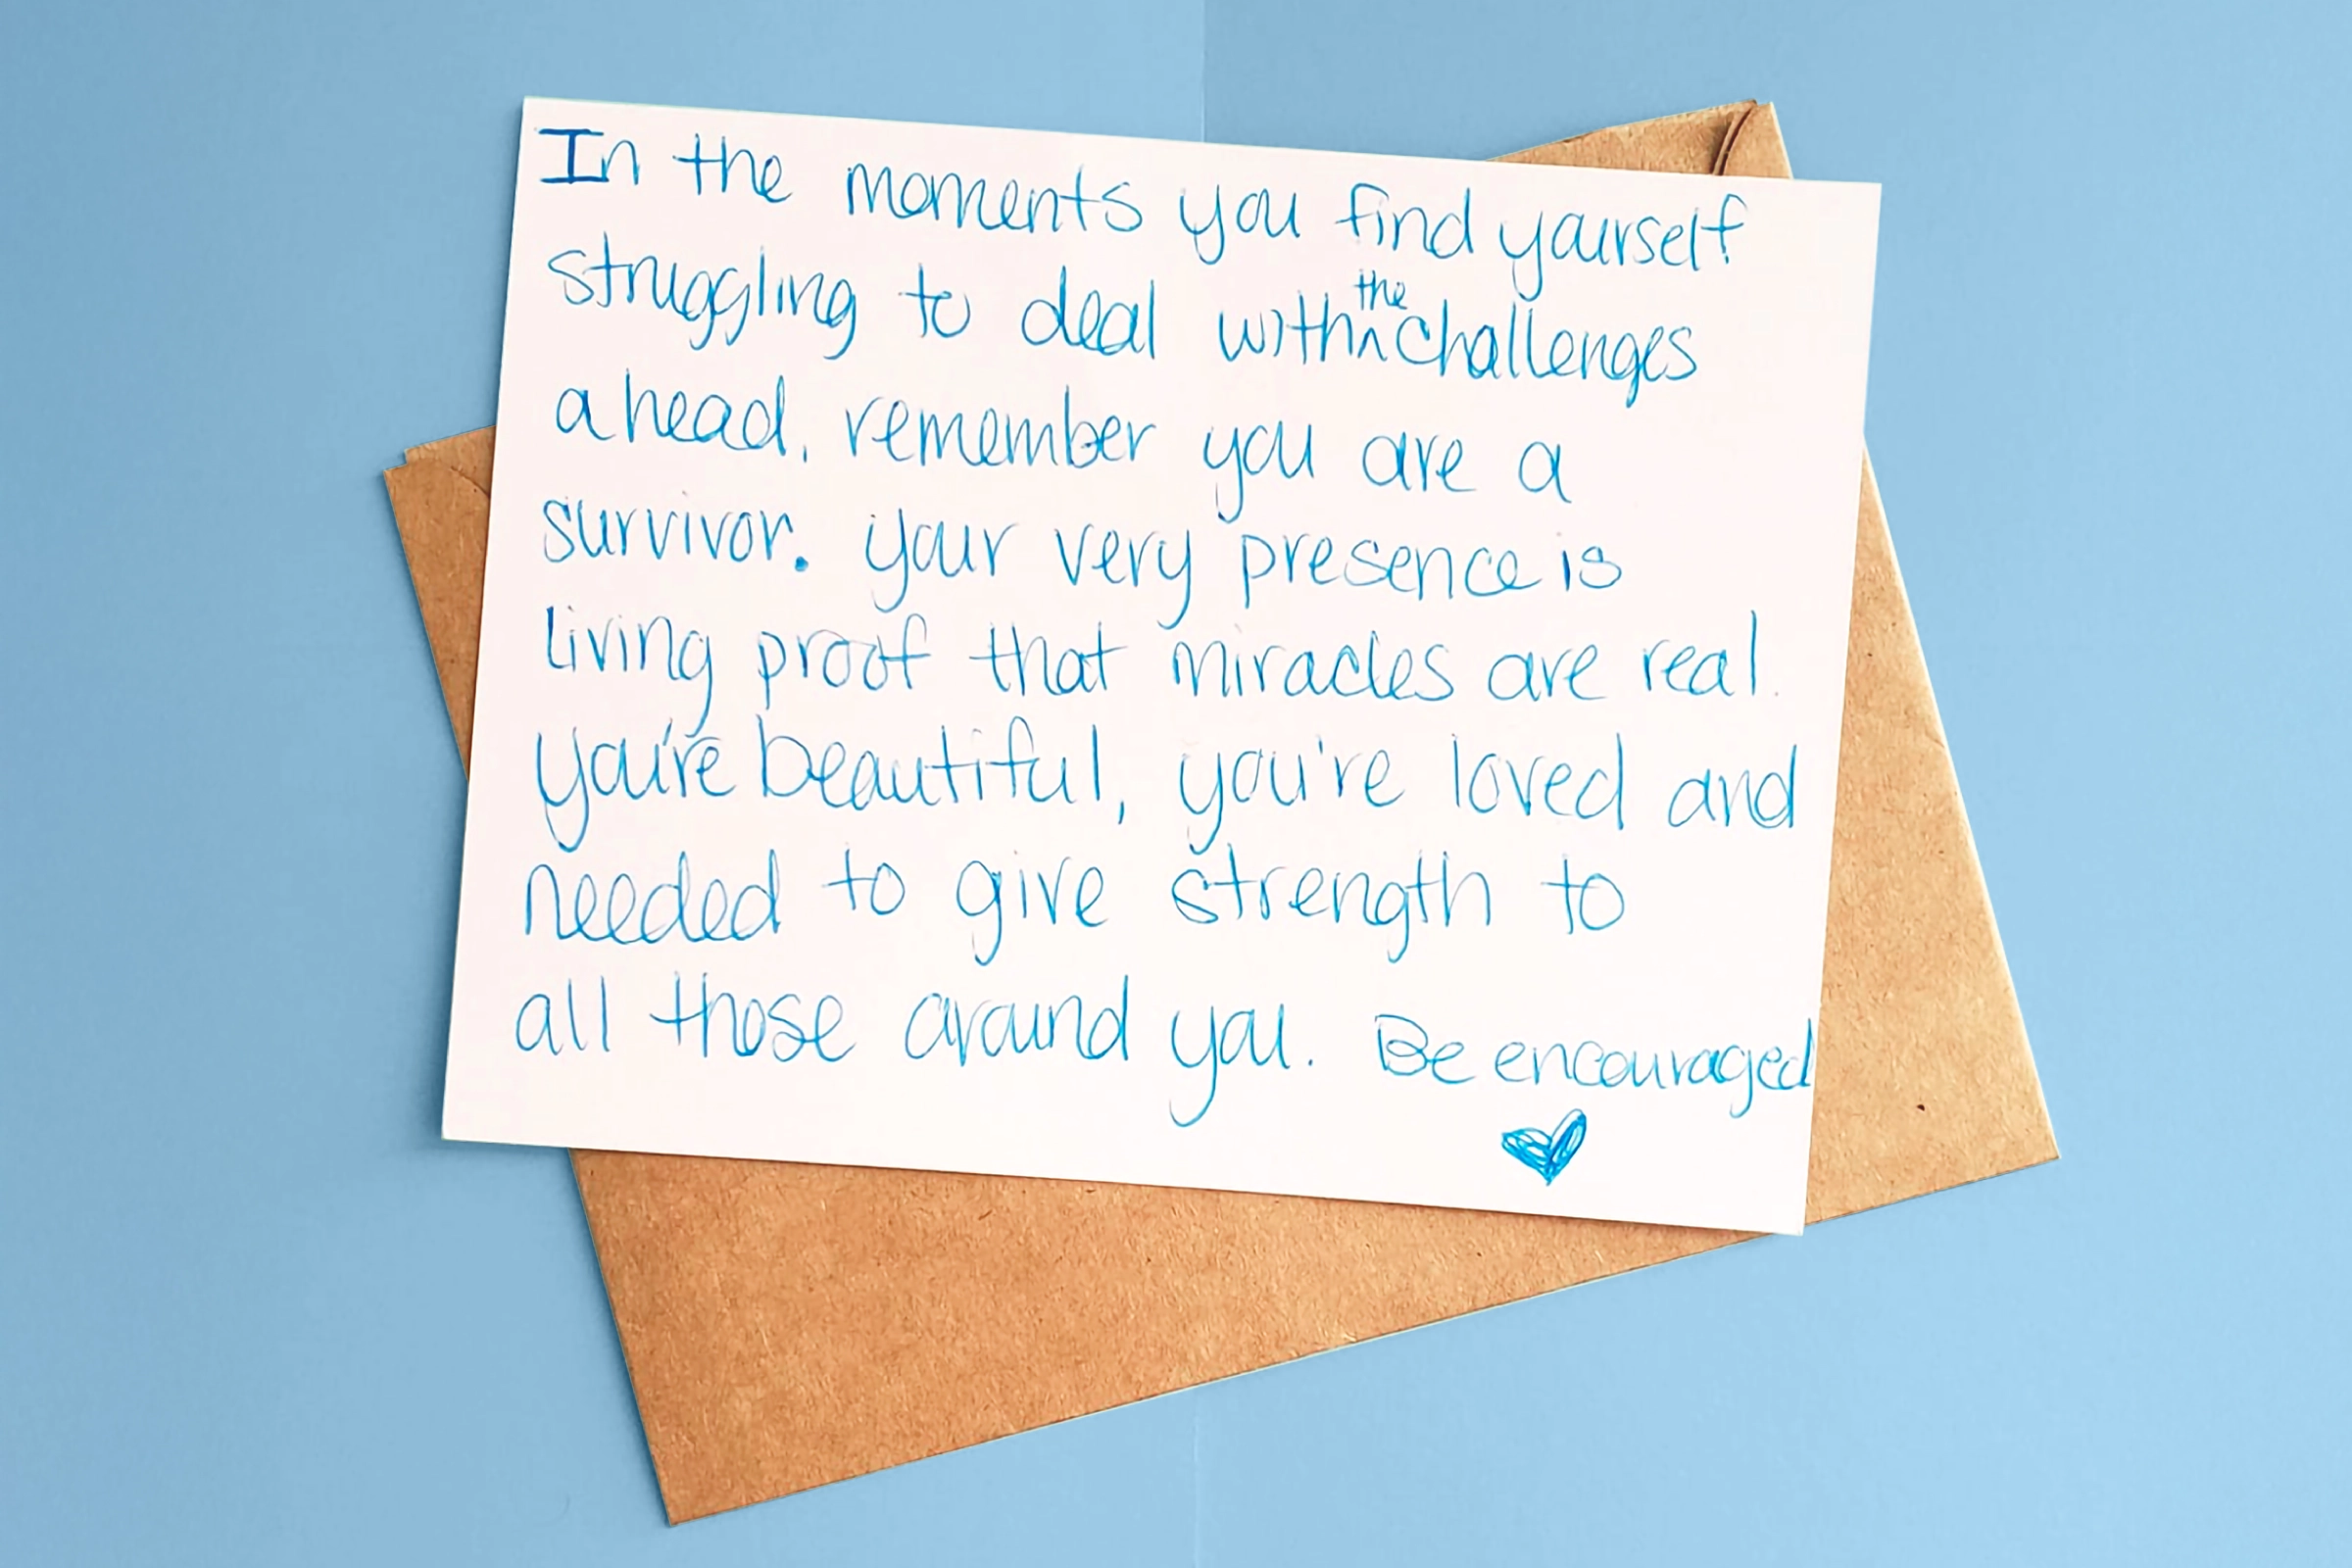 In the moments you find yourself
struggling to deal with the challenges
ahead, remember you are a
survivor. Your very presence is
living proof that miracles are real.
You're beautiful, you're loved and
needed to give strength to
all those around you. Be encouraged